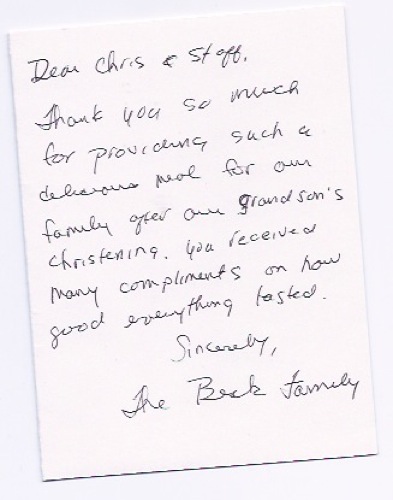 Dear Chris & Staff,
Thank you so much
for providing such a
delicious meal for our
family after our grandson's
christening. You received
many compliments on how
good everything tasted.
Sincerely,
The Beck Family